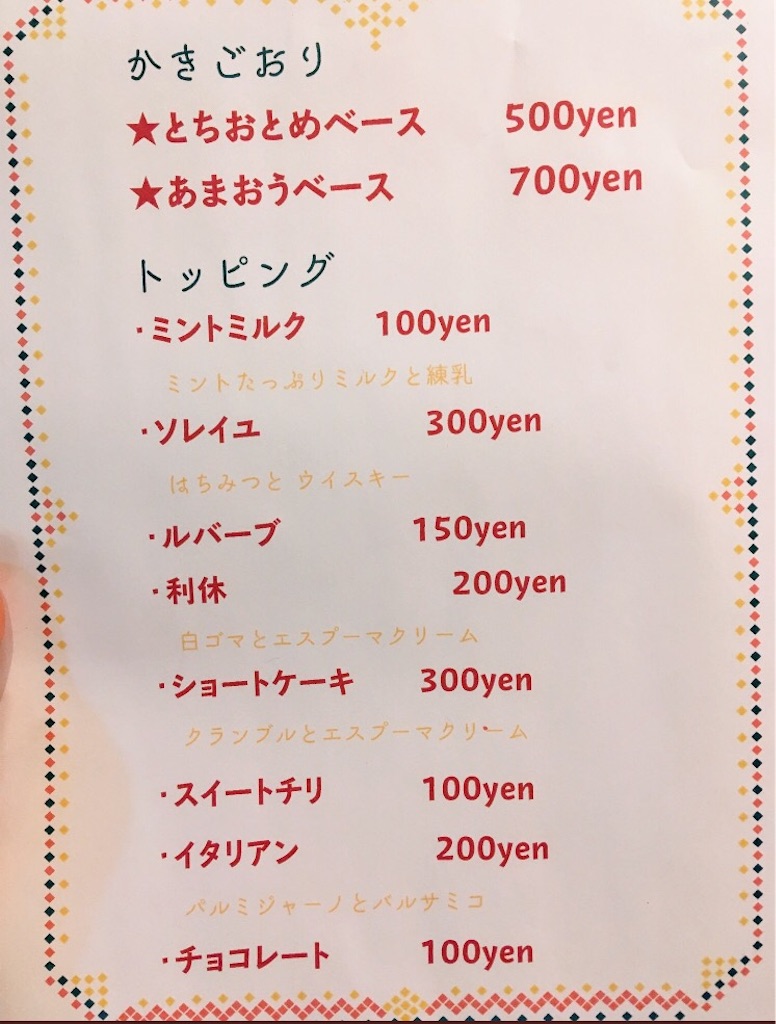 かきごおり
★とちおとめベース 500yen
★あまおうベース 700yen
トッピング
・ミントミルク 100yen
ミントたっぷりミルクと練乳
・ソレイユ 300yen
はちみつと ウイスキー
・ルバーブ 150yen
・利休 200yen
白ゴマとエスプーマクリーム
・ショートケーキ 300yen
クランブルとエスプーマクリーム
・スイートチリ 100yen
・イタリアン 200yen
パルミジャーノとバルサミコ
・チョコレート 100yen